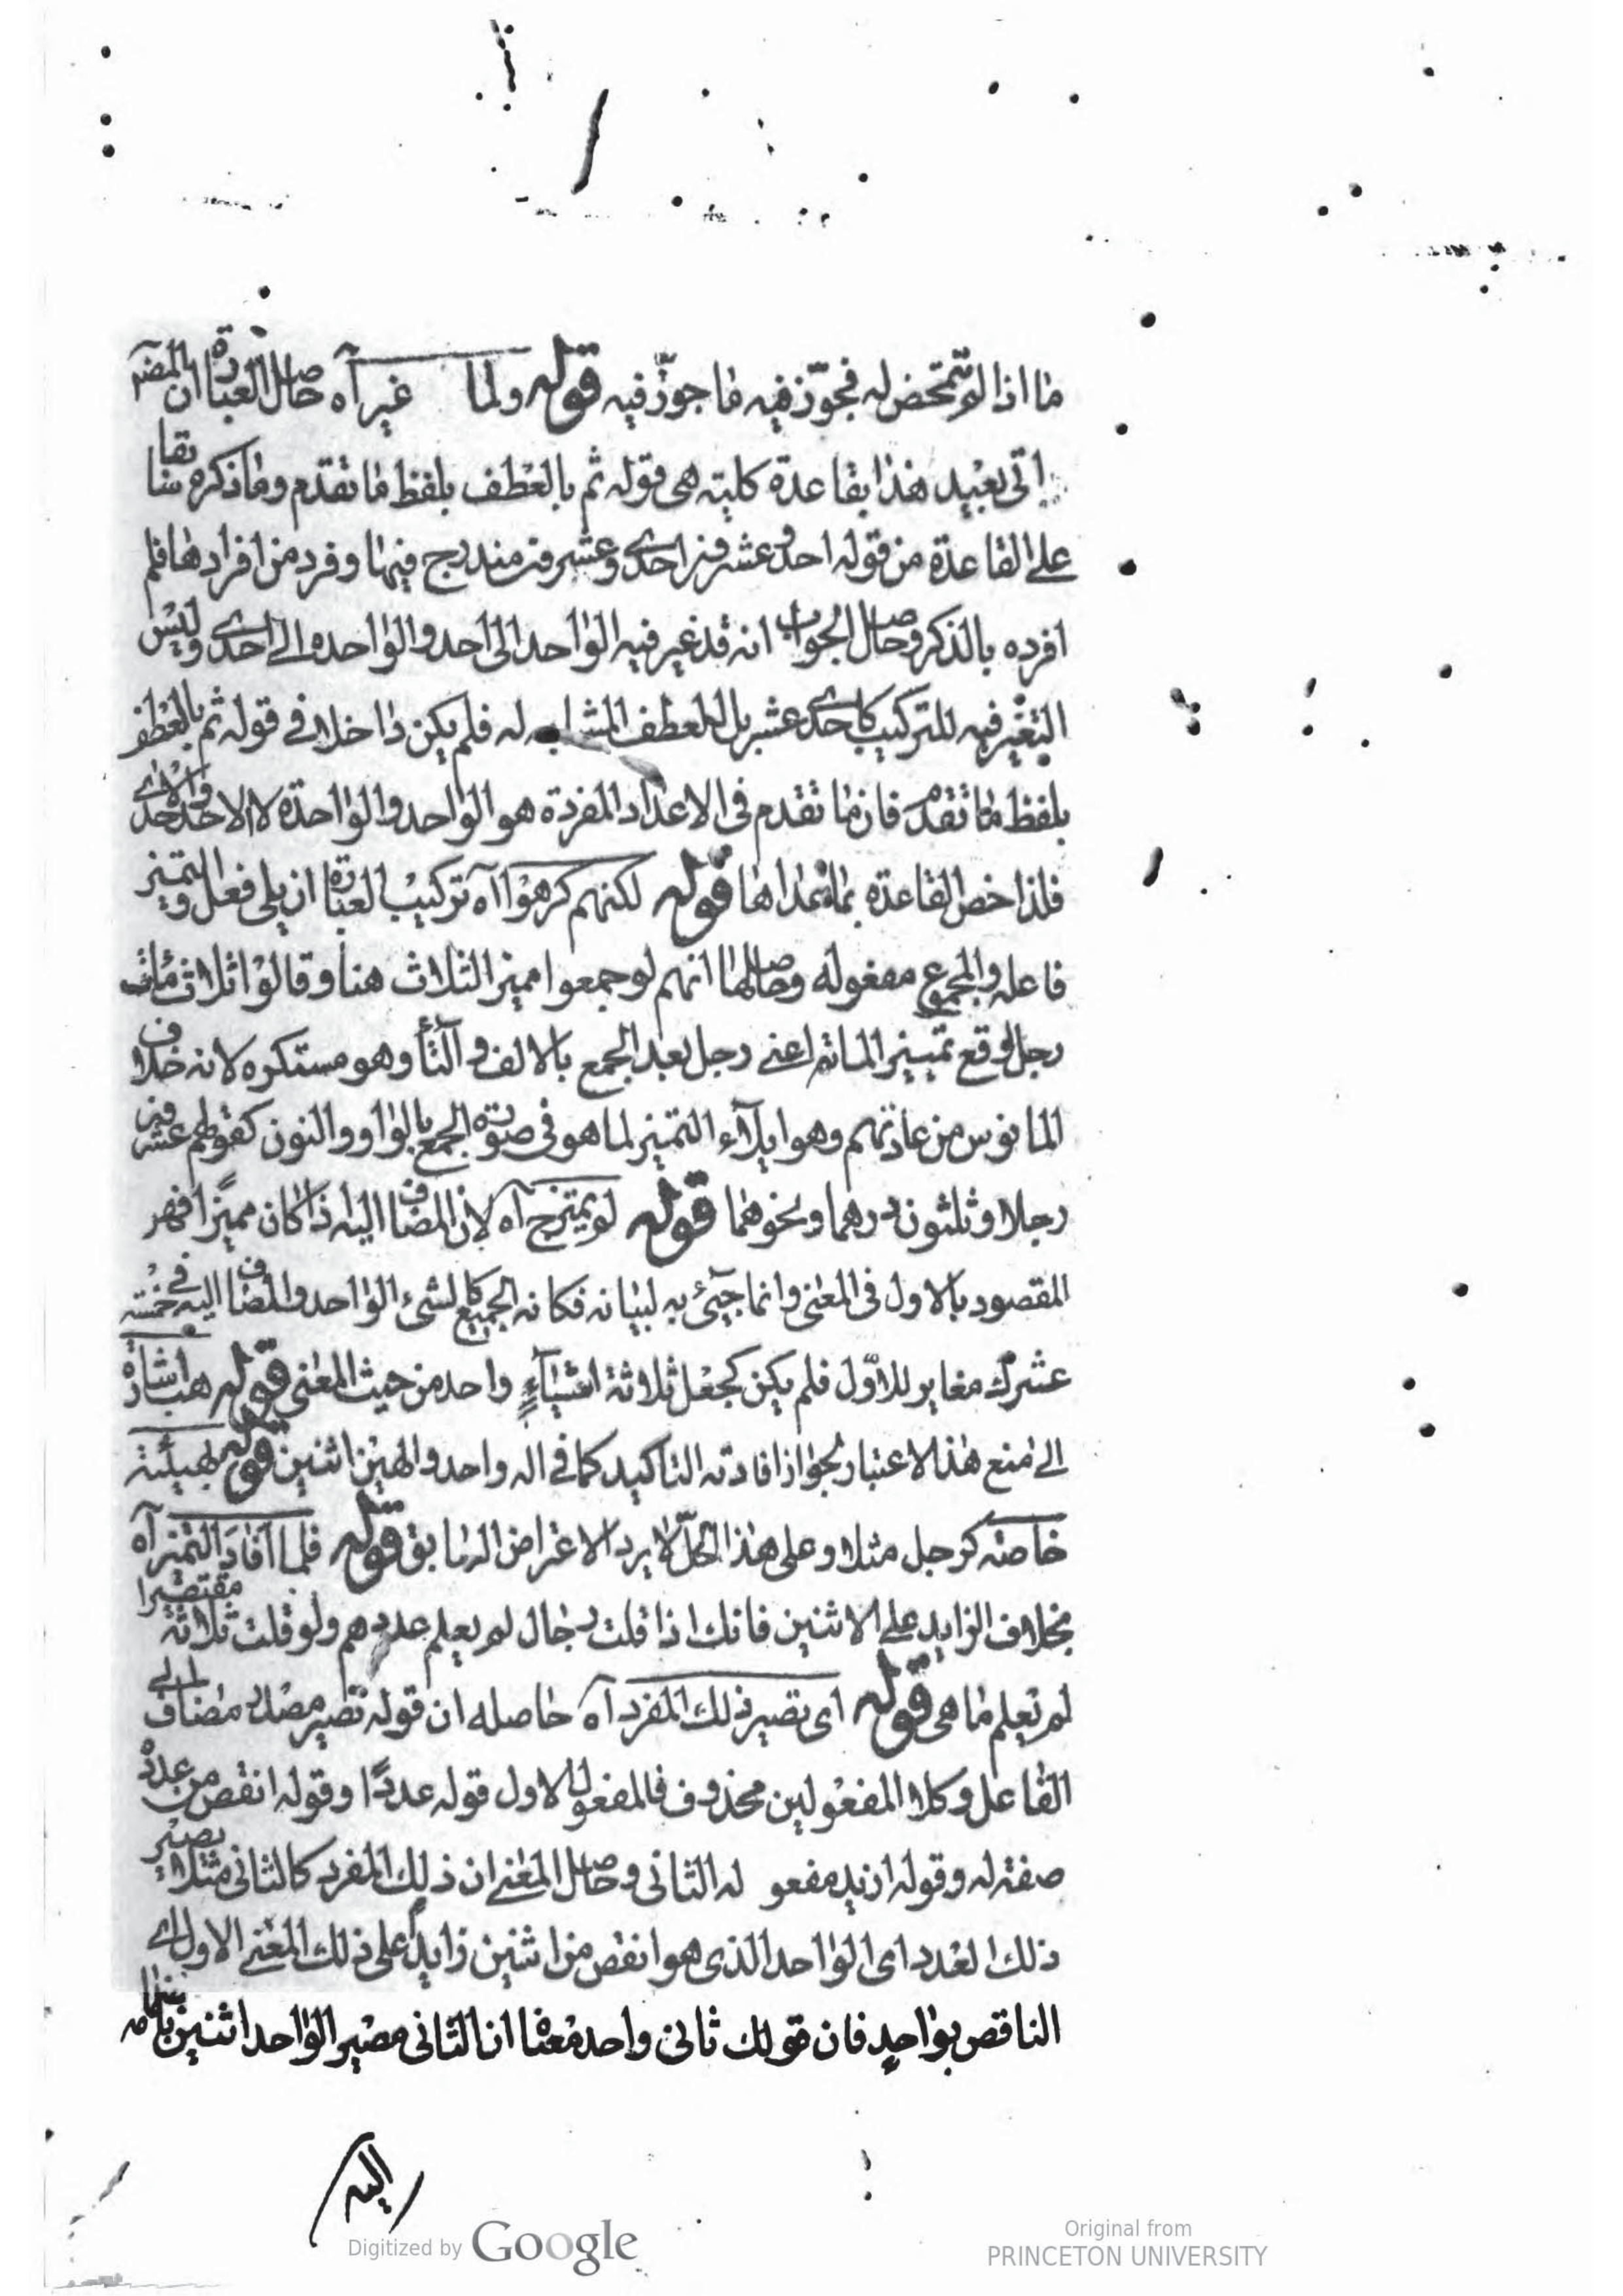 ما اذا لم تتمحض له فجوّز فيه ما جوّز فيه قوله ولما غير آه حاصل العبارة ان المصنّف
اتى بعيد هذا بقاعدة كلية هى قوله ثم بالعطف بلفظ ما تقدم وما ذكره سابقا
على القاعدة من قوله احد وعشرون احدى وعشرون مندرج فيها وفرد من افرادها فلم
افرده بالذكر وحاصل الجواب انه قد غير فيه الواحد الى احد والواحدة الى احدى وليس
التغير فيه للتركيب كاحدى عشر بل للعطف المشابه له فلم يكن داخلا فى قوله ثم بالعطف
بلفظ ما تقدم فان ما تقدم فى الاعداد المفردة هو الواحد والواحدة لا الاحد والاحدى
فلذا خص القاعدة بما عداها قوله لكنهم كرهوا اه تركيب العبارة ان يلى فعل التميز
فاعله والمجموع مفعوله وحاصلها انهم لو جمعوا مميز الثلاث هنا وقالوا ثلاث مئات
رجل وقع تمييز المائة اعنى رجل بعد الجمع بالالف والتأ وهو مستكره لانه خلاف
المانوس من عادتهم وهو ايلآء التميز لما هو فى صورة الجمع بالواو والنون كقولهم عشرون
رجلا وثلثون درهما ونحوهما قوله لم يمتزج آه لان المضاف اليه اذا كان مميزًا فهو
المقصود بالاول فى المعنى وانما جيئ به لبيانه فكانه الجميع كالشئ الواحد والمضاف اليه فى خمسة
عشرك مغاير للاوّل فلم يكن كجعل ثلاثة اشيآءٍ واحد من حيث المعنى قوله هب اشارة
الى منع هذا الاعتبار لجواز افادته التاكيد كما فى اله واحد والهين اثنين قوله لهيئة
خاصّه كرجل مثلا وعلى هذا الحلّ لا يرد الاعتراض السابق قوله فلما افادَ التميز آه
بخلاف الزايد على الاثنين فانك اذا قلت رجال لم يعلم عددهم ولو قلت ثلاثة مقتصرا
لم تعلم ما هى قوله اى تصيير ذلك المفرد آه حاصله ان قوله تصيير مصدر مضاف الى
الفاعل وكلا المفعولين محذوف فالمفعول الاول قوله عددًا وقوله انقص من عدد
صفة له وقوله ازيد مفعو له الثانى وحاصل المعنى ان ذلك المفرد كالثانى مثلا يصير
ذلك العدد اى الواحد الذى هو انقص من اثنين زايدًا على ذلك المعنى الاول اى
الناقص بواحدٍ فان قولك ثانى واحد معناه ان الثانى مصير الواحد اثنين بانضمامه
اليه
Digitized by Google
Original from
PRINCETON UNIVERSITY